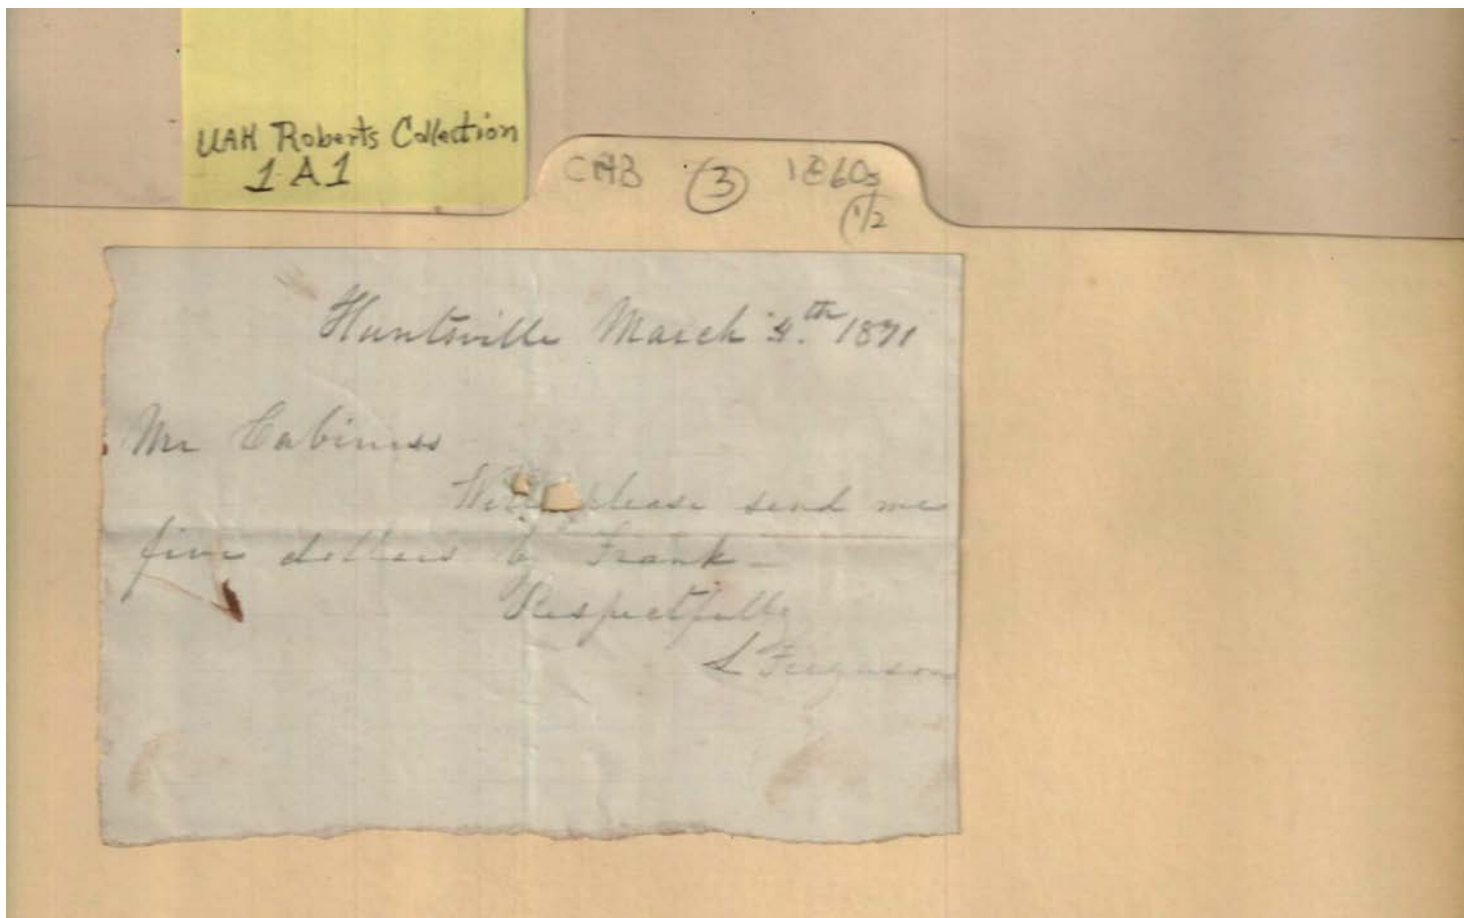 UAH Roberts Collection
1 A 1
CAB ③ 1860s
1/2
Huntsville March 4.th 1871
Mr Cabiness
Will please send me
five dollars by Frank –
Respectfully
S Ferguson